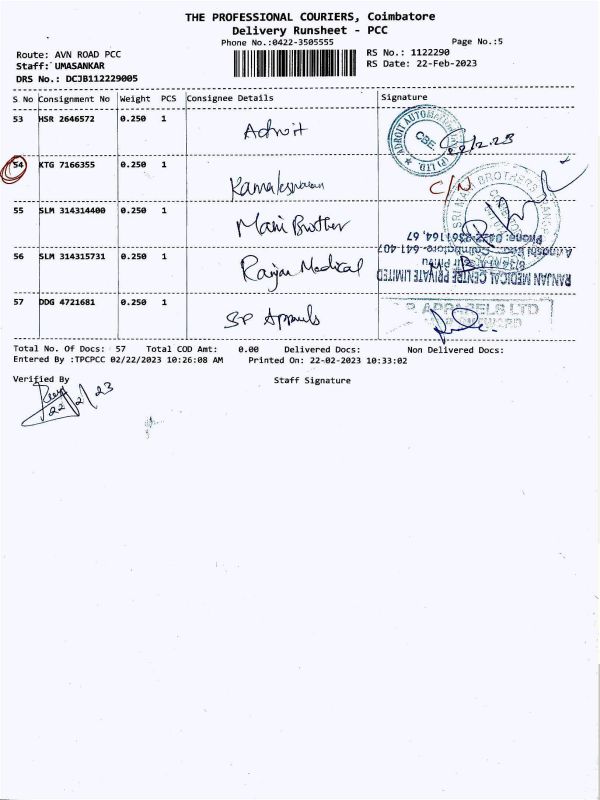 THE PROFESSIONAL COURIERS, Coimbatore
Delivery Runsheet - PCC
Phone No.:0422-3505555
Page No.:5
Route: AVN ROAD PCC
RS No.: 1122290
Staff: UMASANKAR
RS Date: 22-Feb-2023
DRS No.: DCJB112229005
S No Consignment No Weight PCS Consignee Details Signature
53 HSR 2646572 0.250 1 Adroit
ADROIT AUTOMA (P) LTD CBE. 22/2.23
54 KTG 7166355 0.250 1
C/N
SRI MANI BROTHERS
55 SLM 314314400 0.250 1 Mani Brother
56 SLM 314315731 0.250 1 Ranjan Medical
RANJAN MEDICAL CENTRE PRIVATE LIMITED
Avinashi Road, Coimbatore- 641 407
57 DDG 4721681 0.250 1 SP Apparels
P. APPARELS LTD
Total No. Of Docs: 57 Total COD Amt: 0.00 Delivered Docs: Non Delivered Docs:
Entered By :TPCPCC 02/22/2023 10:26:08 AM Printed On: 22-02-2023 10:33:02
Verified By Staff Signature
22/2/23